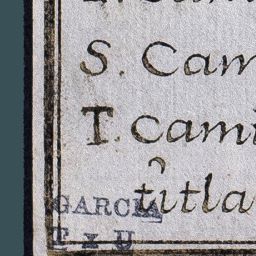 S. Cam
T. Cami
titla
GARCIA
T x U